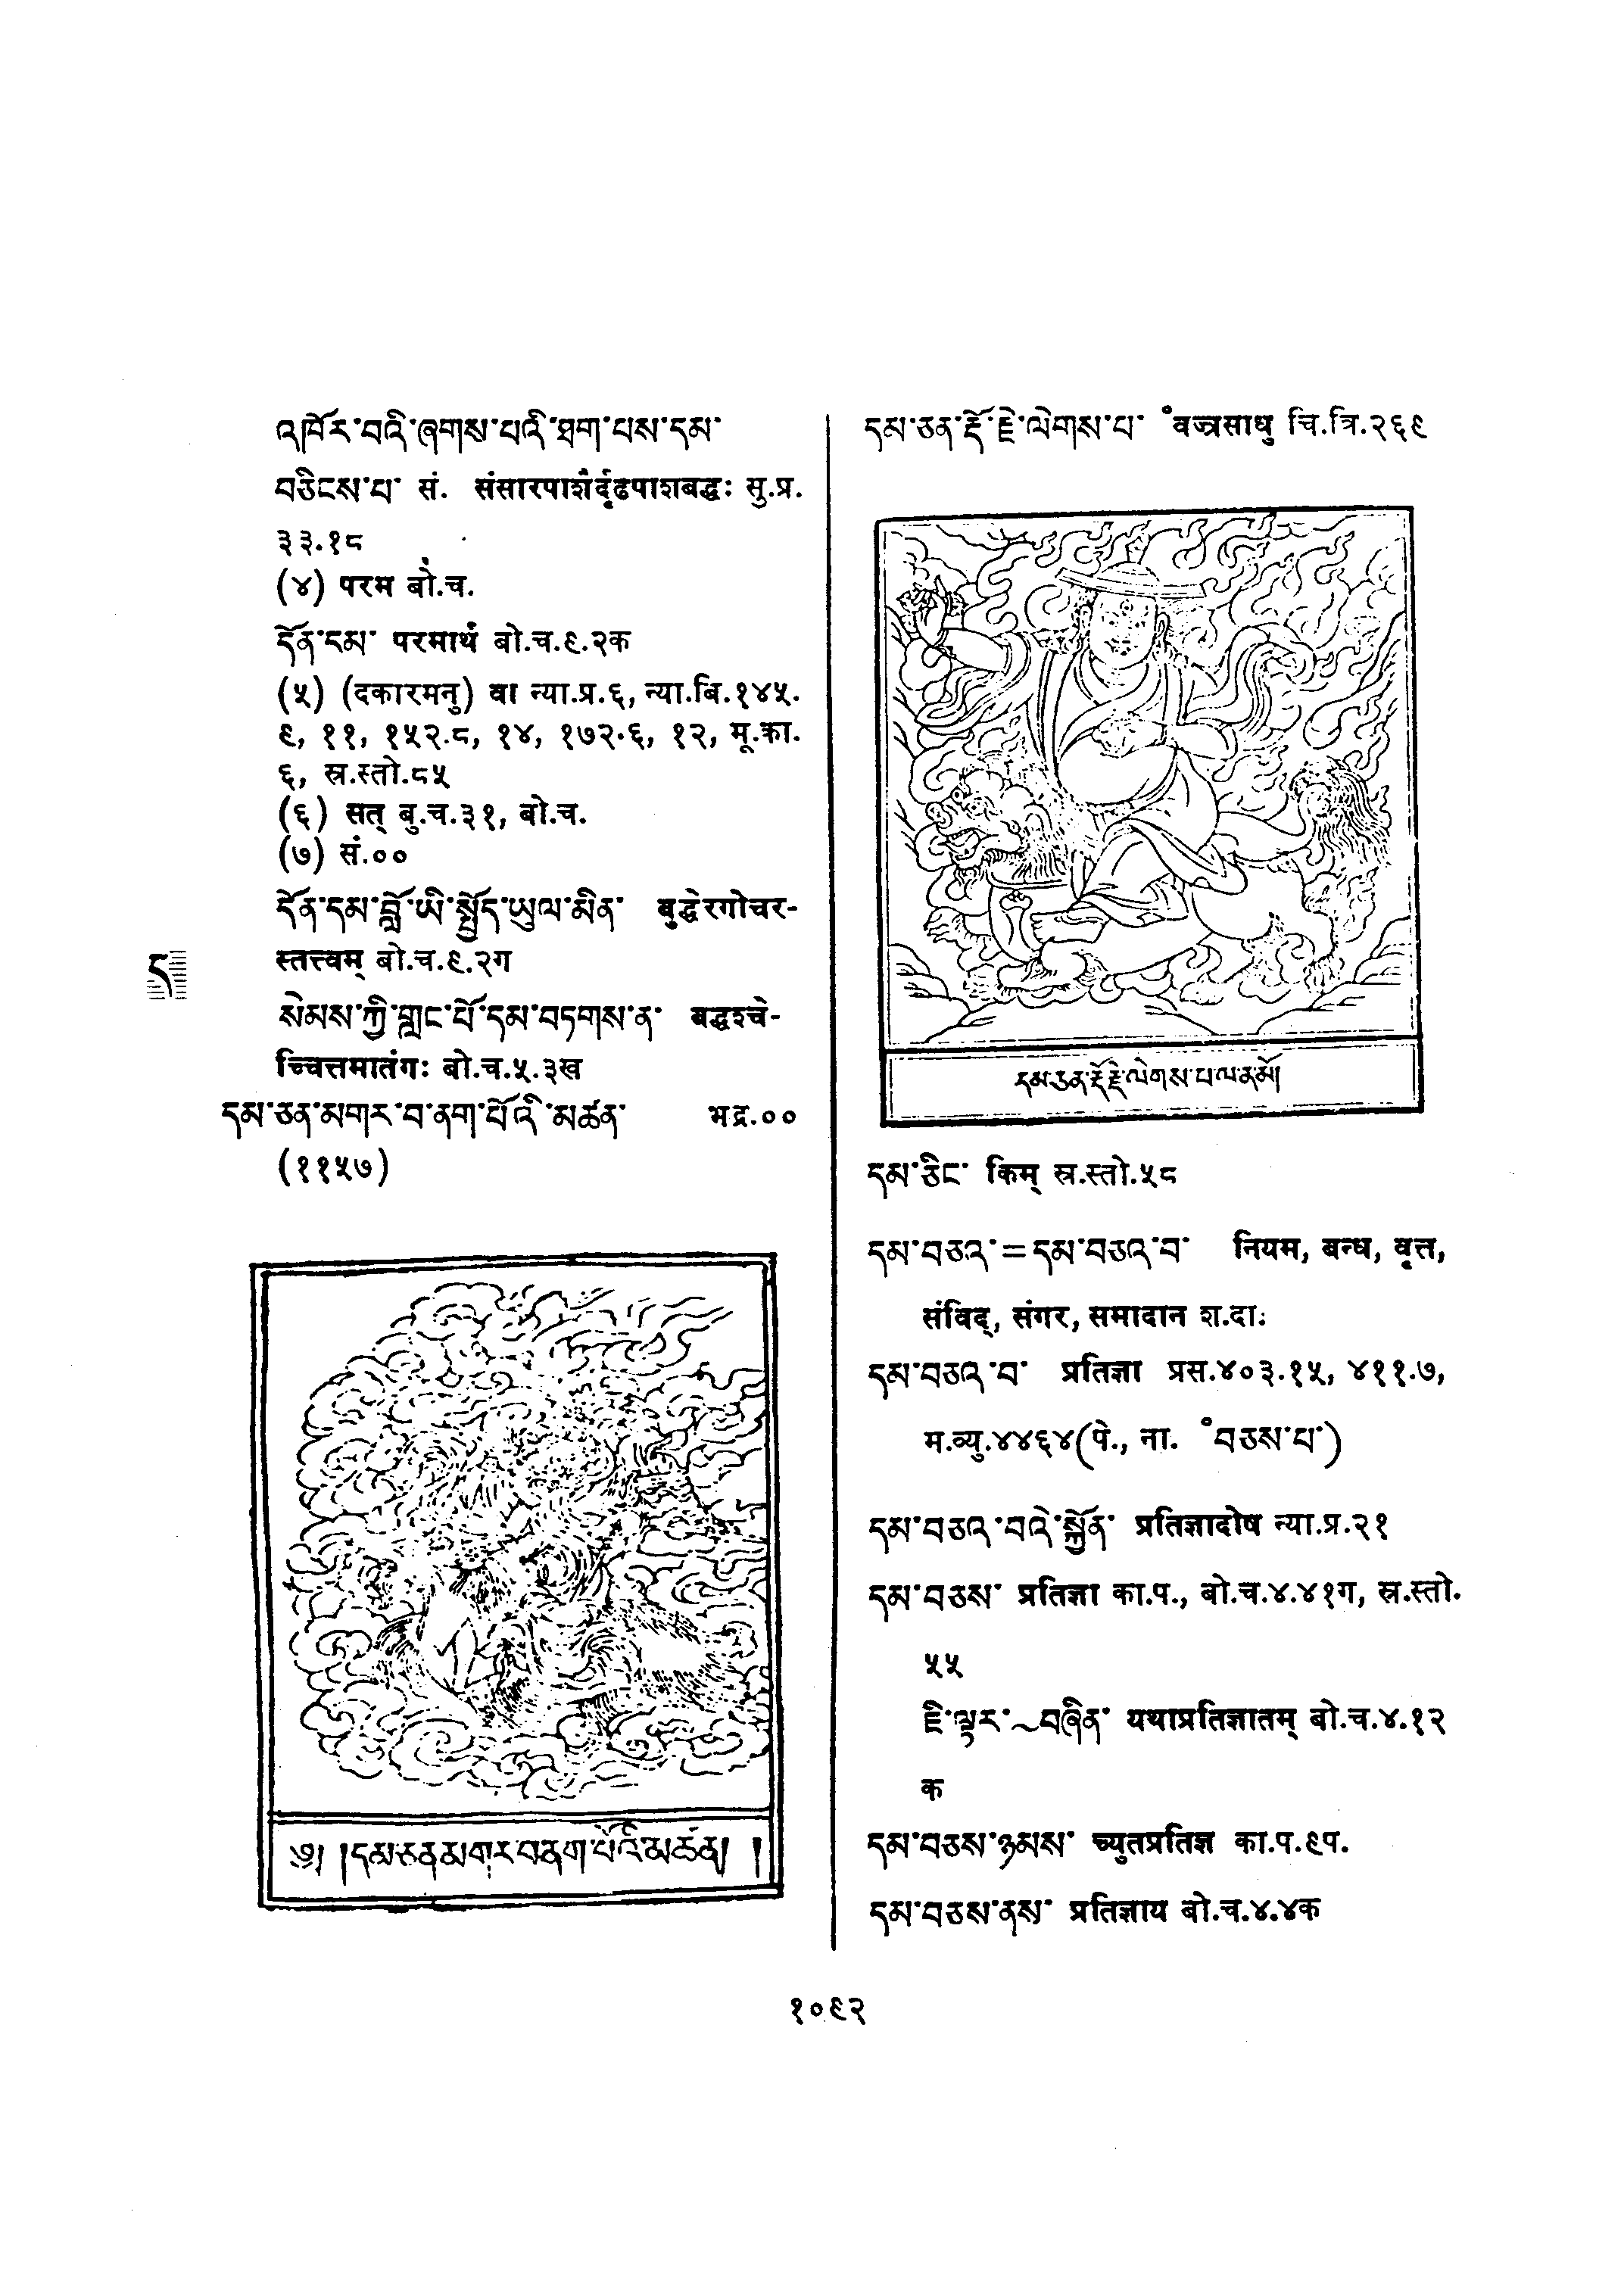 འཁོར་བའི་ཞགས་པའི་ཐག་པས་དམ་
བཅིངས་པ་ सं. संसारपाशैर्दृढपाशबद्धः सु.प्र.
३३.१८
(४) परम बो.च.
དོན་དམ་ परमार्थ बो.च.९.२क
(५) (दकारमनु) वा न्या.प्र.६, न्या.बि.१४५.
९, ११, १५२.८, १४, १७२.६, १२, मू.का.
६, स्र.स्तो.८५
(६) सत् बु.च.३१, बो.च.
(७) सं.००
དོན་དམ་བློ་ཡི་སྤྱོད་ཡུལ་མིན་ बुद्धेरगोचर-
स्तत्त्वम् बो.च.९.२ग
སེམས་ཀྱི་གླང་པོ་དམ་བཏགས་ན་ बद्धश्चे-
च्चित्तमातंगः बो.च.५.३ख
ད
དམ་ཅན་མགར་བ་ནག་པོའི་མཚན་ भद्र.००
(११५७)
༄། །དམ་ཅན་མགར་བ་ནག་པོའི་མཚན། །
དམ་ཅན་རྡོ་རྗེ་ལེགས་པ་ ॰वज्रसाधु चि.त्रि.२६९
དམ་ཅན་རྡོ་རྗེ་ལེགས་པ་ལ་ན་མོ།
དམ་ཅིང་ किम् स्र.स्तो.५८
དམ་བཅའ་=དམ་བཅའ་བ་ नियम, बन्ध, वृत्त,
संविद्, संगर, समादान श.दाः
དམ་བཅའ་བ་ प्रतिज्ञा प्रस.४०३.१५, ४११.७,
म.व्यु.४४६४(पे., ना. ॰བཅས་པ་)
དམ་བཅའ་བའི་སྐྱོན་ प्रतिज्ञादोष न्या.प्र.२१
དམ་བཅས་ प्रतिज्ञा का.प., बो.च.४.४१ग, स्र.स्तो.
५५
ཇི་ལྟར་~བཞིན་ यथाप्रतिज्ञातम् बो.च.४.१२
क
དམ་བཅས་ཉམས་ च्युतप्रतिज्ञ का.प.९प.
དམ་བཅས་ནས་ प्रतिज्ञाय बो.च.४.४क
१०९२